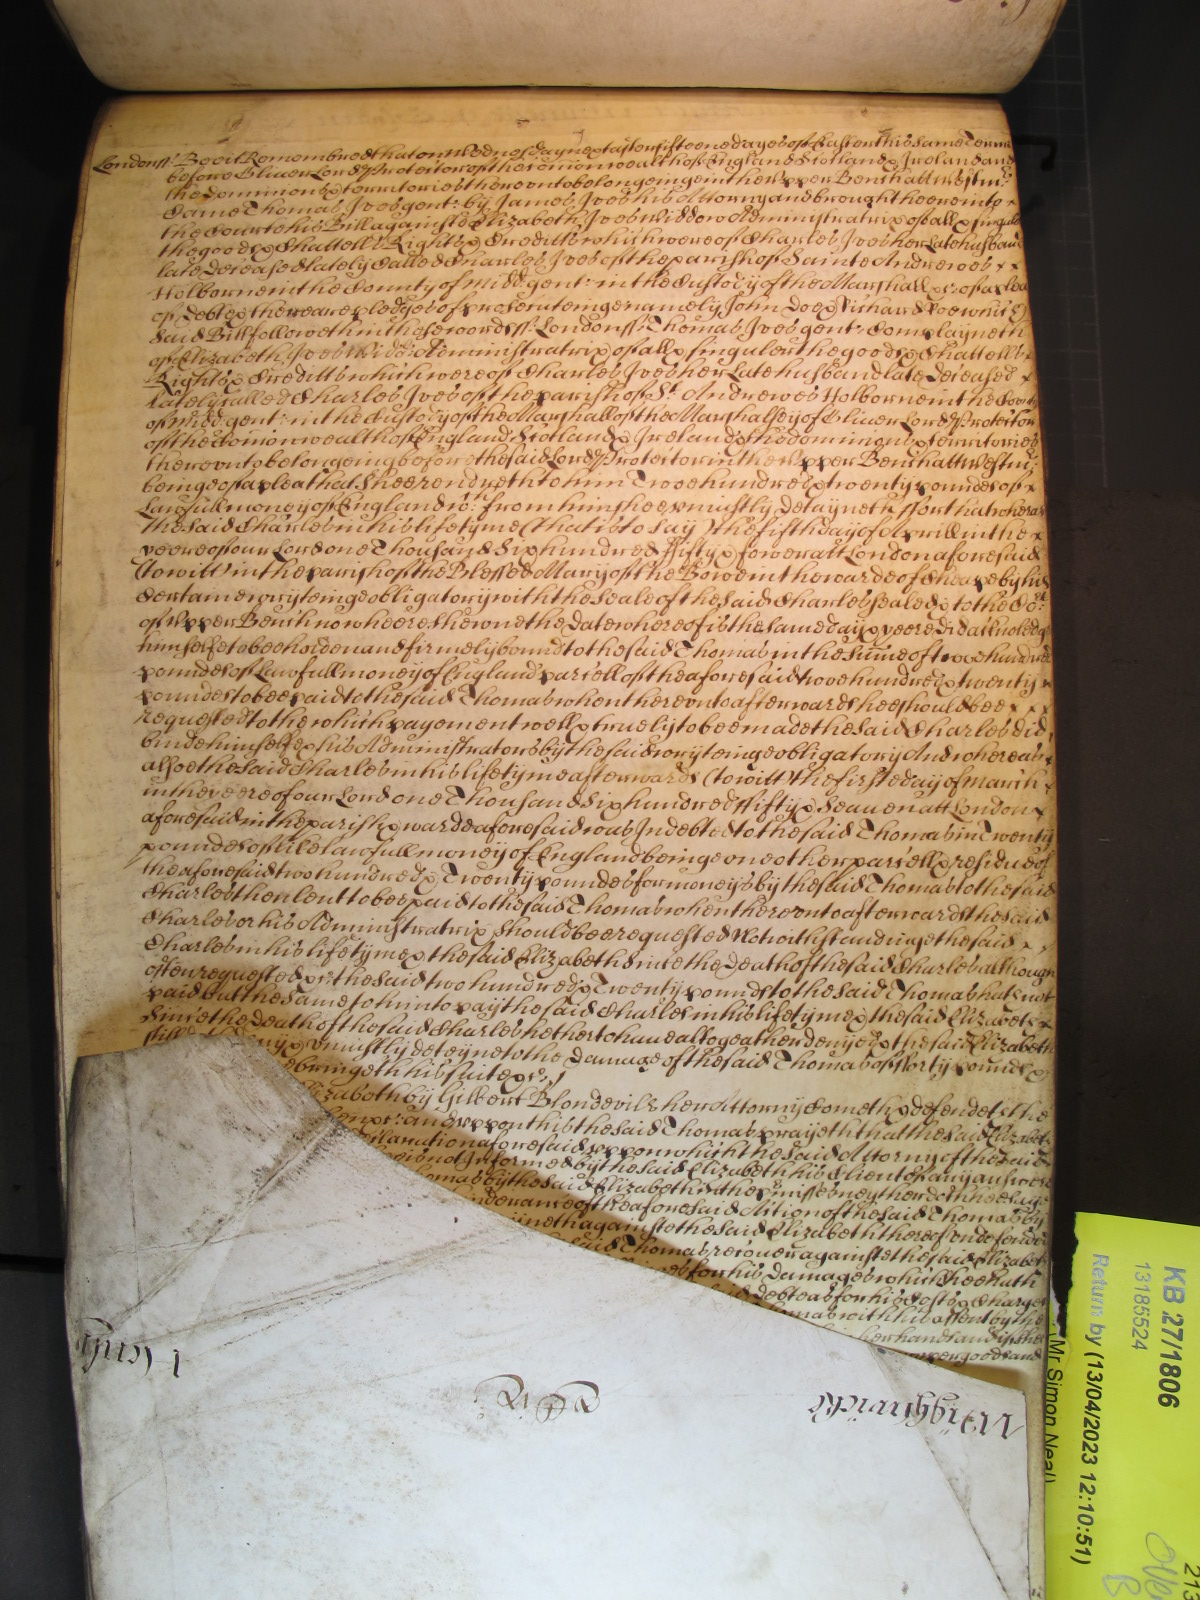 London ss: Bee it Remembred that on wednesday next after fifteene dayes of Easter this same Terme
before Oliver Lord Protector of the Comonwealth of England Scotland & Ireland and
the dominions & territories thereonto belongeinge in the vpper Bench att Westmr:
Came Thomas Ives gent: by James Ives his Attorny and brought there into
the Court his Bill againste Elizabeth Ives Widdow Administratrix of all & singuler
the goods & Chattells Rights & Creditts which were of Charles Ives her Late husband
late deceased lately Called Charles Ives of the parish of Sainte Andrewes x x
Holborne in the County of Midd gent: in the Custody of the Marshall &c: of a plea
of debt & there are pledges of prosecuteinge namely John Doe & Richard Roe which
said Bill followeth in these words ss: London ss: Thomas Ives gent: Complayneth
of Elizabeth Ives Widd: Administratrix of all & singuler the goods & Chattells x
Rights & Creditts which were of Charles Ives her Late husband late deceased x
Lately called Charles Ives of the parish of St. Andrewes Holborne in the County
of Midd gent: in the Custody of the Marshall of the Marshalsey of Oliver Lord Protector
of the Comonwealth of England Scotland & Ireland & the dominions & territories
thereonto belongeing before the said Lord Protector in the vpper Bench att Westmr:
beinge of a plea that Shee render to him Twoe hundred & twenty pounds of x
Lawfull money of England which from him shee vniustly detayneth ffor that wheras
the said Charles in his life tyme (that is to say) the fifth day of Aprill in the x
yeere of our Lord one Thousand Six hundred ffifty & fower att London aforesaid
(to witt) in the parish of the Blessed Mary of the Bowe in the warde of Cheape by his
Certaine writeinge obligatory with the Seale of the said Charles Sealed & to the Co:rt
of vpper Bench now heere shewne the date whereof is the same day & yeere did acknoledge
himselfe to bee holden and firmely bound to the said Thomas in the summe of twoe hundred
pounds of Lawfull money of England parcell of the aforesaid twoe hundred & twenty x
pounds to bee paid to the said Thomas when thereonto afterwards hee should bee x x x
requested to the which payement well & truely to bee made the said Charles did,
binde himselfe & his Administrators by the said writeinge obligatory And whereas x
alsoe the said Charles in his life tyme afterwards (to witt) the firste day of march x
in the yeere of our Lord one Thousand Six hundred ffifty & Seauen att London x
aforesaid in the parish & warde aforesaid was Indebted to the said Thomas in Twenty
pounds of like lawfull money of England beinge one other parcell & residue of
the aforesaid two hundred & Twenty pounds for moneys by the said Thomas to the said
Charles then lent to bee paid to the said Thomas when thereonto afterwards the said
Charles or his Administratrix should bee requested Notwithstandinge the said x x
Charles in his life tyme & the said Elizabeth since the death of the said Charles although
often requested &c: the said two hundred & Twenty pounds to the said Thomas hath not
paid but the same to him to pay the said Charles in his life tyme & the said Elizabeth x
Since the death of the said Charles hetherto haue altogeather denyed & the said Elizabeth
still deny & vniustly deteyne to the Damage of the said Thomas of fforty pounds &
bringeth his suite &c:
Elizabeth by Gilbert Blondevile her Attorny Cometh & defendeth the
&c: and vppon this the said Thomas prayeth that the said Elizabeth
declaration aforesaid vppon which the said Attorny of the said
hee is not Informed by the said Elizabeth his Client of any answere
Thomas by the said Elizabeth in the premisses neyther doth hee say
of the aforesaid Action of the said Thomas by
againste the said Elizabeth thereof vndefended
said Thomas recouer againste the said Elizabeth
for his damages which hee hath
debt as for his Costs & Charges
Thomas with his assent by the
her hands and if shee
goods and
Wiggwicke
KB 27/1806
13185524
Return by (13/04/2023 12:10:51)
(Mr Simon Neal)
213